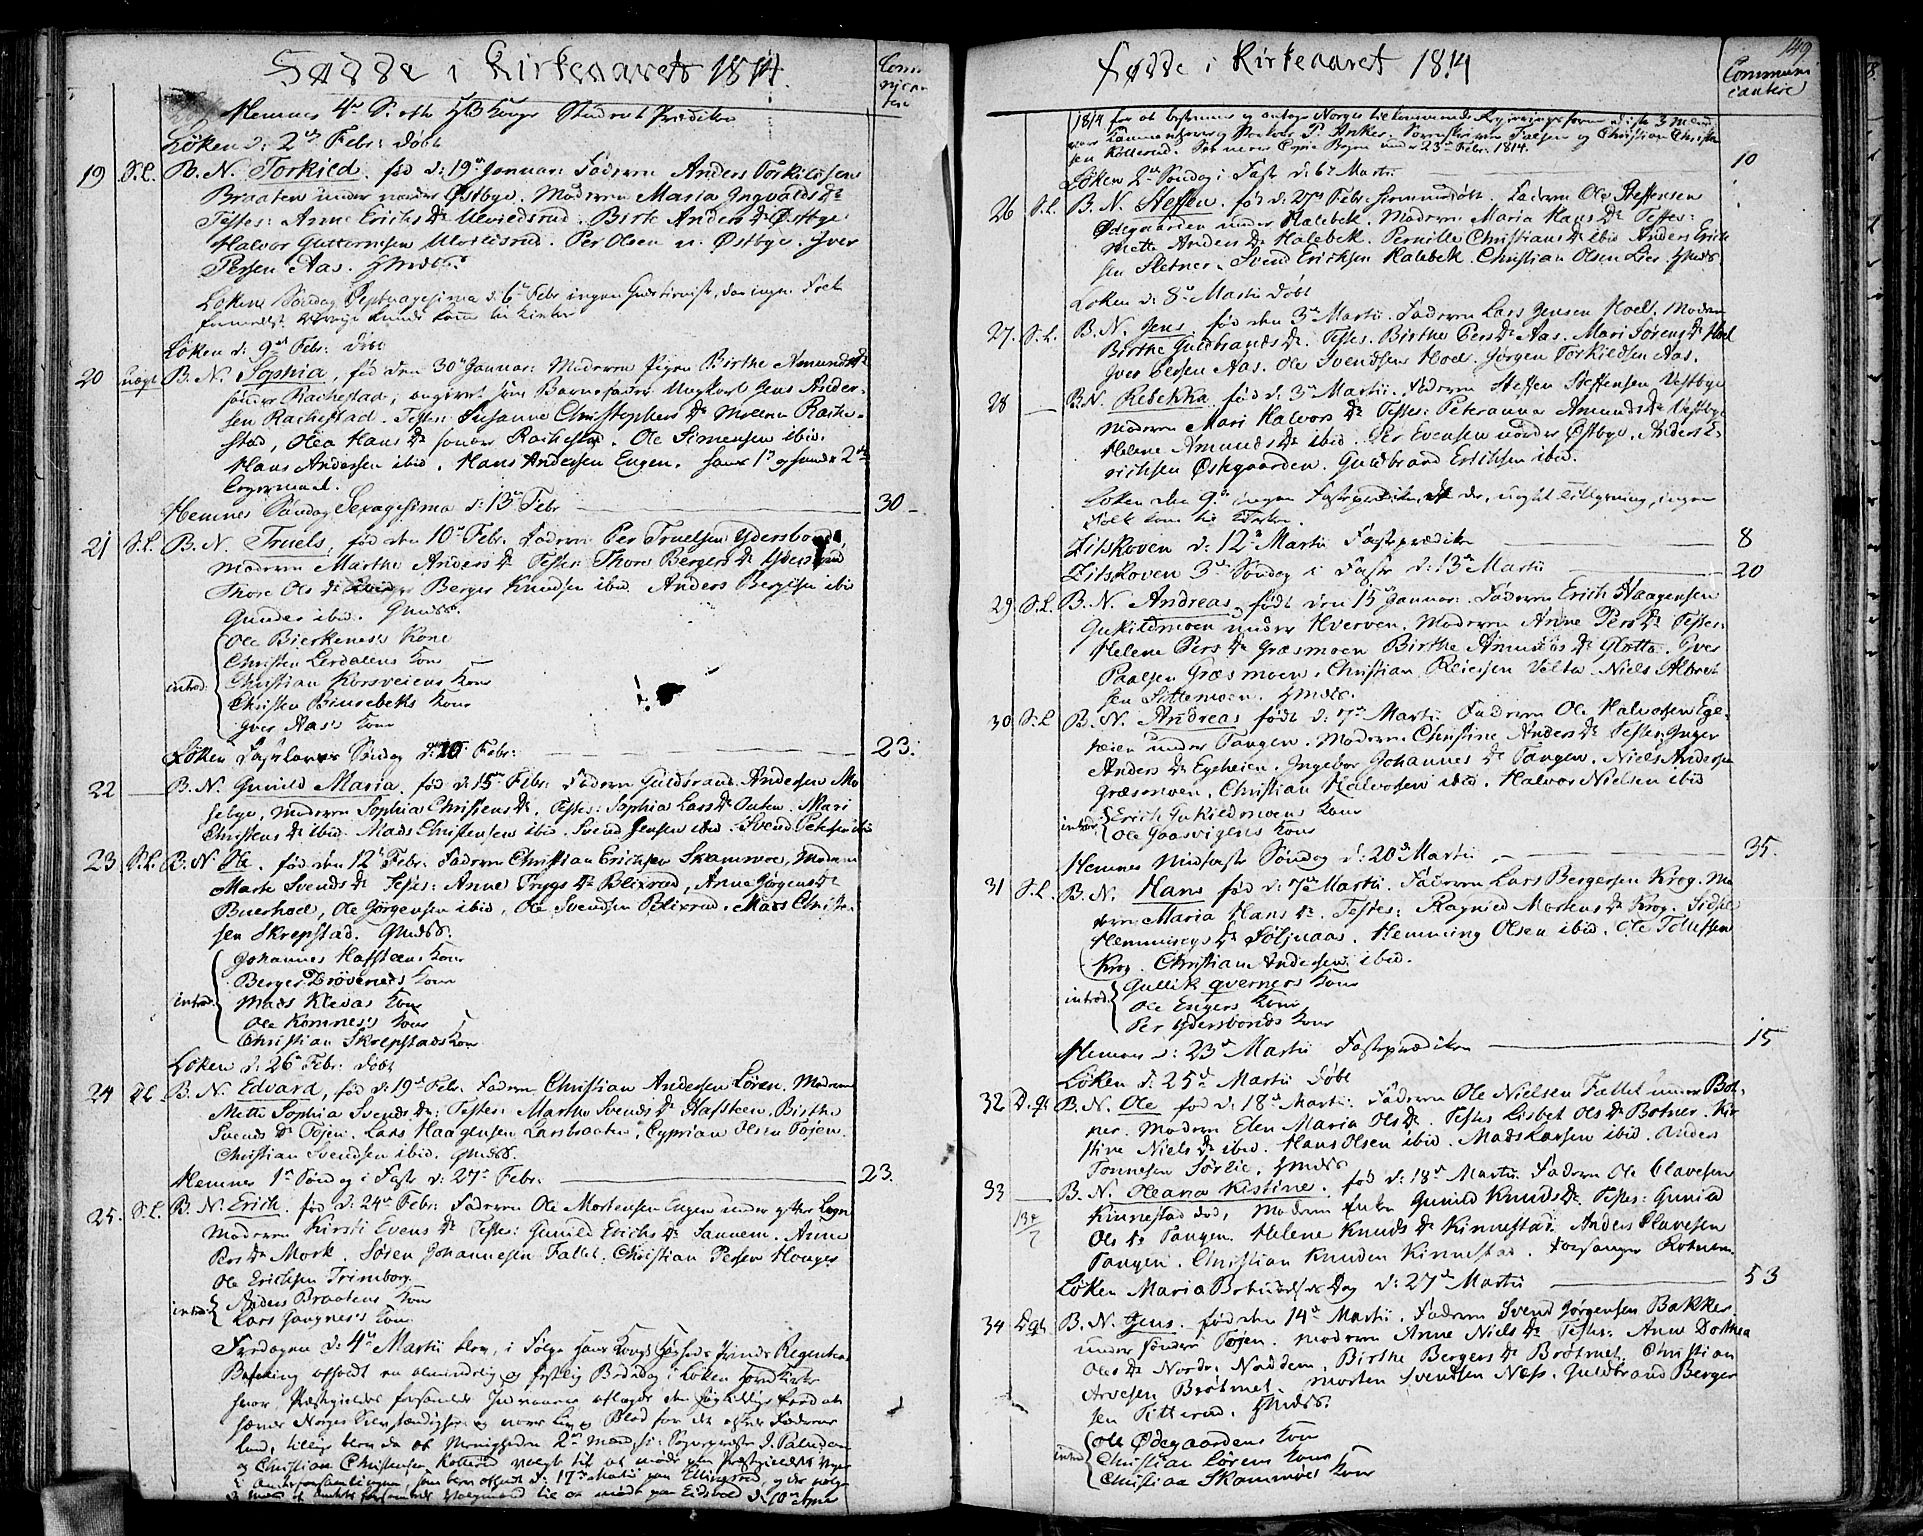 Fødde i Kirkeaaret 1814.
Com-
munican-
tere
Hemnes 4de S. efter Student Prædiken
Løken d: 2den Febr: døbt
19 S.L. B. N. Torkild. fød d: 19de Januar: Faderen Anders Torkildsen
Braaten under nordre Østbye. Moderen Maria Ingvalds Dr
Testes: Anne Erichs Dr Ulvildsrud. Birte Anders Dr Østbye.
Halvor Guttormsen Ulvildsrud. Per Olsen n. Østbye. Iver
Persen Aas. Hmdss.
Løken Søndag Septuagesima d: 6te Febr ingen Gudstieniste, da ingen Folk
formedelst kunde komme til Kirken
Løken d: 9de Febr: døbt
20 uægt B. N. Sophia, fød den 30te Januar: Moderen Pigen Birthe Amunds Dr
søndre Rachestad, angivet som Barnefader Ungkarl Jens Ander-
sen Rachestad. Testes: Susanne Christophers Dr Moeen Rache-
stad, Olea Hans Dr søndre Rachestad. Ole Simensen ibid.
Hans Andersen ibid. Hans Andersen Engen. hans 1te og hendes 2det
Leyermaal.
Hemnes Søndag Sexagesima d: 13de Febr 30
21 S.L. B. N. Truels, fød den 10de Febr. Faderen Per Truelsen Ydersbonde,
Moderen Marthe Anders Dr Testes: Thore Bergers Dr
Thore Ols Dr Berger Knudsen ibid. Anders Bergersen ibid
Gunder ibid. Hmdss.
Ole Bierkenes's Kone
Christen Lerdalens Kone
introd: Christian Korsveiens Kone
Christen Binsebeks Kone
Iver Aas's Kone
Løken Fastelavns Søndag d: 20 Febr: 23.
22 — B. N. Gunild Maria. fød d: 15de Febr: Faderen Guldbrand Andersen Mo-
sebye, Moderen Sophia Christens Dr. Testes: Sophia Lars Dr Outen. Mari
Christens Dr ibid. Mads Christensen ibid. Svend Jensen ibid. Svend Petersen ibid
23 S.L. B. N. Ole. fød den 12te Febr. Faderen Christian Erichsen Skammoe, Moderen
Marte Svends Dr Testes: Anne Trygs Dr Blixrud, Anne Jørgens Dr
Buerhoel, Ole Jørgensen ibid, Ole Svendsen Blixrud. Mads Christen-
sen Skrepstad. Hmdss.
Johannes Hafsteens Kone
Berger Drøvernes's Kone
introd: Mads Klevas Kone
Ole Komnes's Kone
Christian Skrepstads Kone
Løken d: 26de Febr: døbt
24 Dl. B. N. Edvard, fød d: 19de Febr. Faderen Christian Andersen Løren. Moderen
Mette Sophia Svends Dr: Testes: Marthe Svends Dr Hafsteen, Birthe
Svends Dr Tøjen. Lars Haagensen Larsbraaten, Cyprian Olsen Tøjen.
Christian Svendsen ibid. Hmdss.
Hemnes 1te Søndag i Faste d: 27de Febr. 23.
25. S.L. B. N. Erich. fød d: 24de Febr: Faderen Ole Mortensen Engen under ytter
Moderen Kirsti Evens Dr Testes: Gunild Erichs Dr Sannem. Anne
Pers Dr Mork. Søren Johannesen Fallet. Christian Persen Houger
Ole Erichsen Trimborg.
introd: Anders Braatens Kone
Lars Gangnes's Kone
Fredagen d: 4de Martii blev, i Følge Hans Kongl. Høyheds Prinds Regentens
Befaling afholdt en almindelig og høytidelig Bededag i Løken
hvor Præstegieldet forsamlet Indvaanere aflagde den høytidelige Eed at
hævde Norges Selvstændighed og vove Liv og Blod for det elskede Fædrene
land, tillige blev da af Menigheden 2de Mænd, Sogneprest J. Paludan
og Christian Christensen Kollerud valgt til at møde paa Præstegieldets Vegne
i Amtsforsamlingen, som blev afholdt d: 17de Martii paa Ellingsrud, og der valgte
til at møde paa Eidsvold d: 10de April

Fødde i Kirkeaaret 1814
149.
Communi
cantere
1814 for at bestemme og antage Norges tilkommende Regieringsform
P. Anker. Sorenskriver Falsen og Christian Christen
sen Kollerud. Copie Bogen under 23de Febr. 1814.
Løken 2den Søndag i Faste d: 6te Martii 10
26 S.L. B. N. Steffen. fød d: 27de Febr. hiemmedøbt. Faderen Ole Steffensen
Ødegaarden under Halebek. Moderen Maria Hans Dr Testes:
Mette Anders Dr Halebek. Pernille Christians Dr ibid Anders Erich
sen Sletner. Svend Erichsen Halebek. Christian Olsen Lier. Hmdss
Løken d: 8de Martii døbt
27. S.L. B. N. Jens. fød den 3de Martii. Faderen Lars Jensen Hoel, Moderen
Birthe Guldbrands Dr. Testes. Birthe Pers Dr Aas. Mari Sørens Dr Hoel
Iver Persen Aas. Ole Svendsen Hoel. Jørgen Torkildsen Aas.
28 — B. N. Rebekka. fød d: 3de Martii. Faderen Steffen Steffensen Vestbye
Moderen Mari Halvors Dr Testes: Peteranna Amunds Dr Vestbye
Helene Amunds Dr ibid. Per Evensen nordre Østbye. Anders E-
richsen Østegaarden. Guldbrand Erichsen ibid.
Løken den 9de ingen Fasteprædiken, da, uagtet Tillysning, ingen
Folk kom til Kirken.
Zitskoven d: 12te Martii Fasteprædiken 8
Zitskoven 3die Søndag i Faste d: 13de Martii 20
29. S.L. B. N. Andreas, født den 15de Januar: Faderen Erich Haagensen
Gukildmoen under Hverven. Moderen Anne Pers Dr Testes:
Helene Pers Dr Græsmoen Birthe Amunds Dr Glotta. Iver
Paalsen Græsmoen. Christian Reiersen Velta. Niels Albret-
sen Sittemoen. Hmdss.
30 S.L B. N. Andreas født d: 7de Martii Faderen Ole Halvorsen Ege-
heien under Tangen. Moderen Christine Anders Dr Testes: Inger
Anders Dr Egeheien. Ingebor Johannes Dr Tangen. Niels Andersen
Græsmoen. Christian Halvorsen ibid. Halvor Nielsen ibid
introd: Erich Gukildmoens Kone
Ole Gaasvigens Kone
Hemnes Midfaste Søndag d: 20de Martii 35.
31 S.L. B. N. Hans fød d: 7de Martii. Faderen Lars Bergersen Krog. Mo-
deren Maria Hans Dr. Testes: Ragnild Mortens Dr Krog. Sidsel
Hemmings Dr Søljuaas. Hemming Olsen ibid. Ole Tollefsen
Krog. Christian Andersen ibid.
introd: Gullik qverners Kone
Ole Engers Kone
Per Ydersbonds Kone
Hemnes d: 23de Martii Fasteprædiken 15
Løken d: 25de Martii døbt
32 D.g. B. N. Ole fød d: 18de Martii: Faderen Ole Nielsen Fallet under Bot-
ner. Moderen Elen Maria Ols Dr. Testes Lisbet Ols Dr Botner. Kir-
stine Niels Dr ibid. Hans Olsen ibid. Mads Larsen ibid. Anders
Tonnesen Sørlie. Hmdss
33 — B. N. Oleana Kistine. fød d: 18de Martii. Faderen Ole Olavesen
13 4/7 Kinnestad død, Moderen Enke Gunild Knuds Dr Testes: Gunild
Ols Dr Tangen. Helene Knuds Dr Kinnestad. Anders Olavesen
Tangen. Christian Knudsen Kinnestad. Forsanger
Løken Maria Bebudelses Dag d: 27de Martii 53
34 Dgl. B. N. Jens. fød den 14de Martii. Faderen Svend Jørgensen Bakker
under søndre Tøjen. Moderen Anne Niels Dr Testes: Anne Dorthea
Oles Dr Nordre Naddem. Birthe Bergers Dr Brøtmet. Christian
Arvesen Brøtmet. Morten Svendsen Næss. Guldbrand Berger
sen Titterud. Hmdss.
introd: Ole Ødegaardens Kone
Christian Lørens Kone
Christian Skammoes Kone